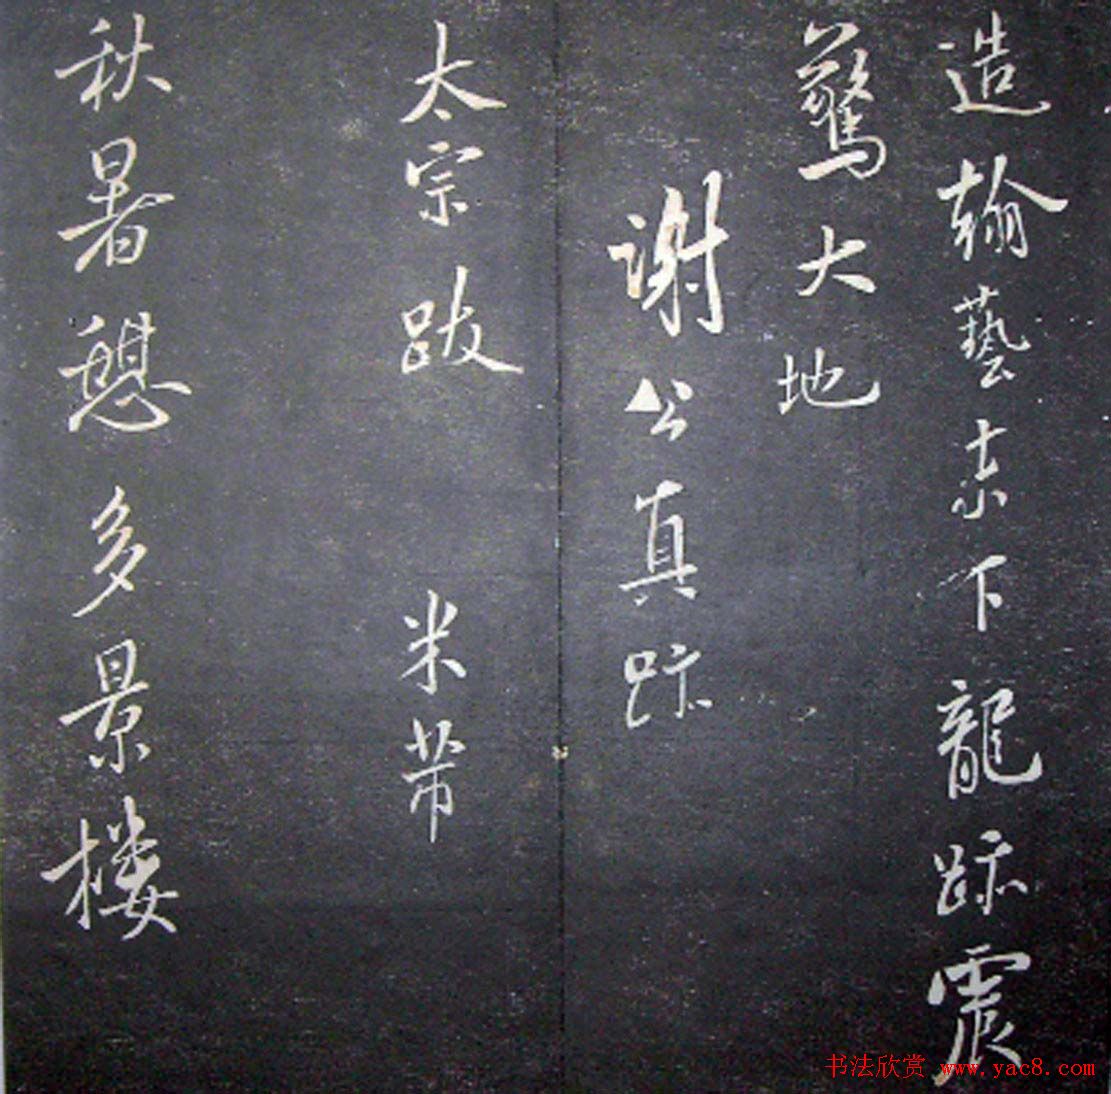 造翰藝素下龍跡震
驚大地
謝公真跡
太宗跋 米芾
秋暑憩多景樓
书法欣赏 www.yac8.com